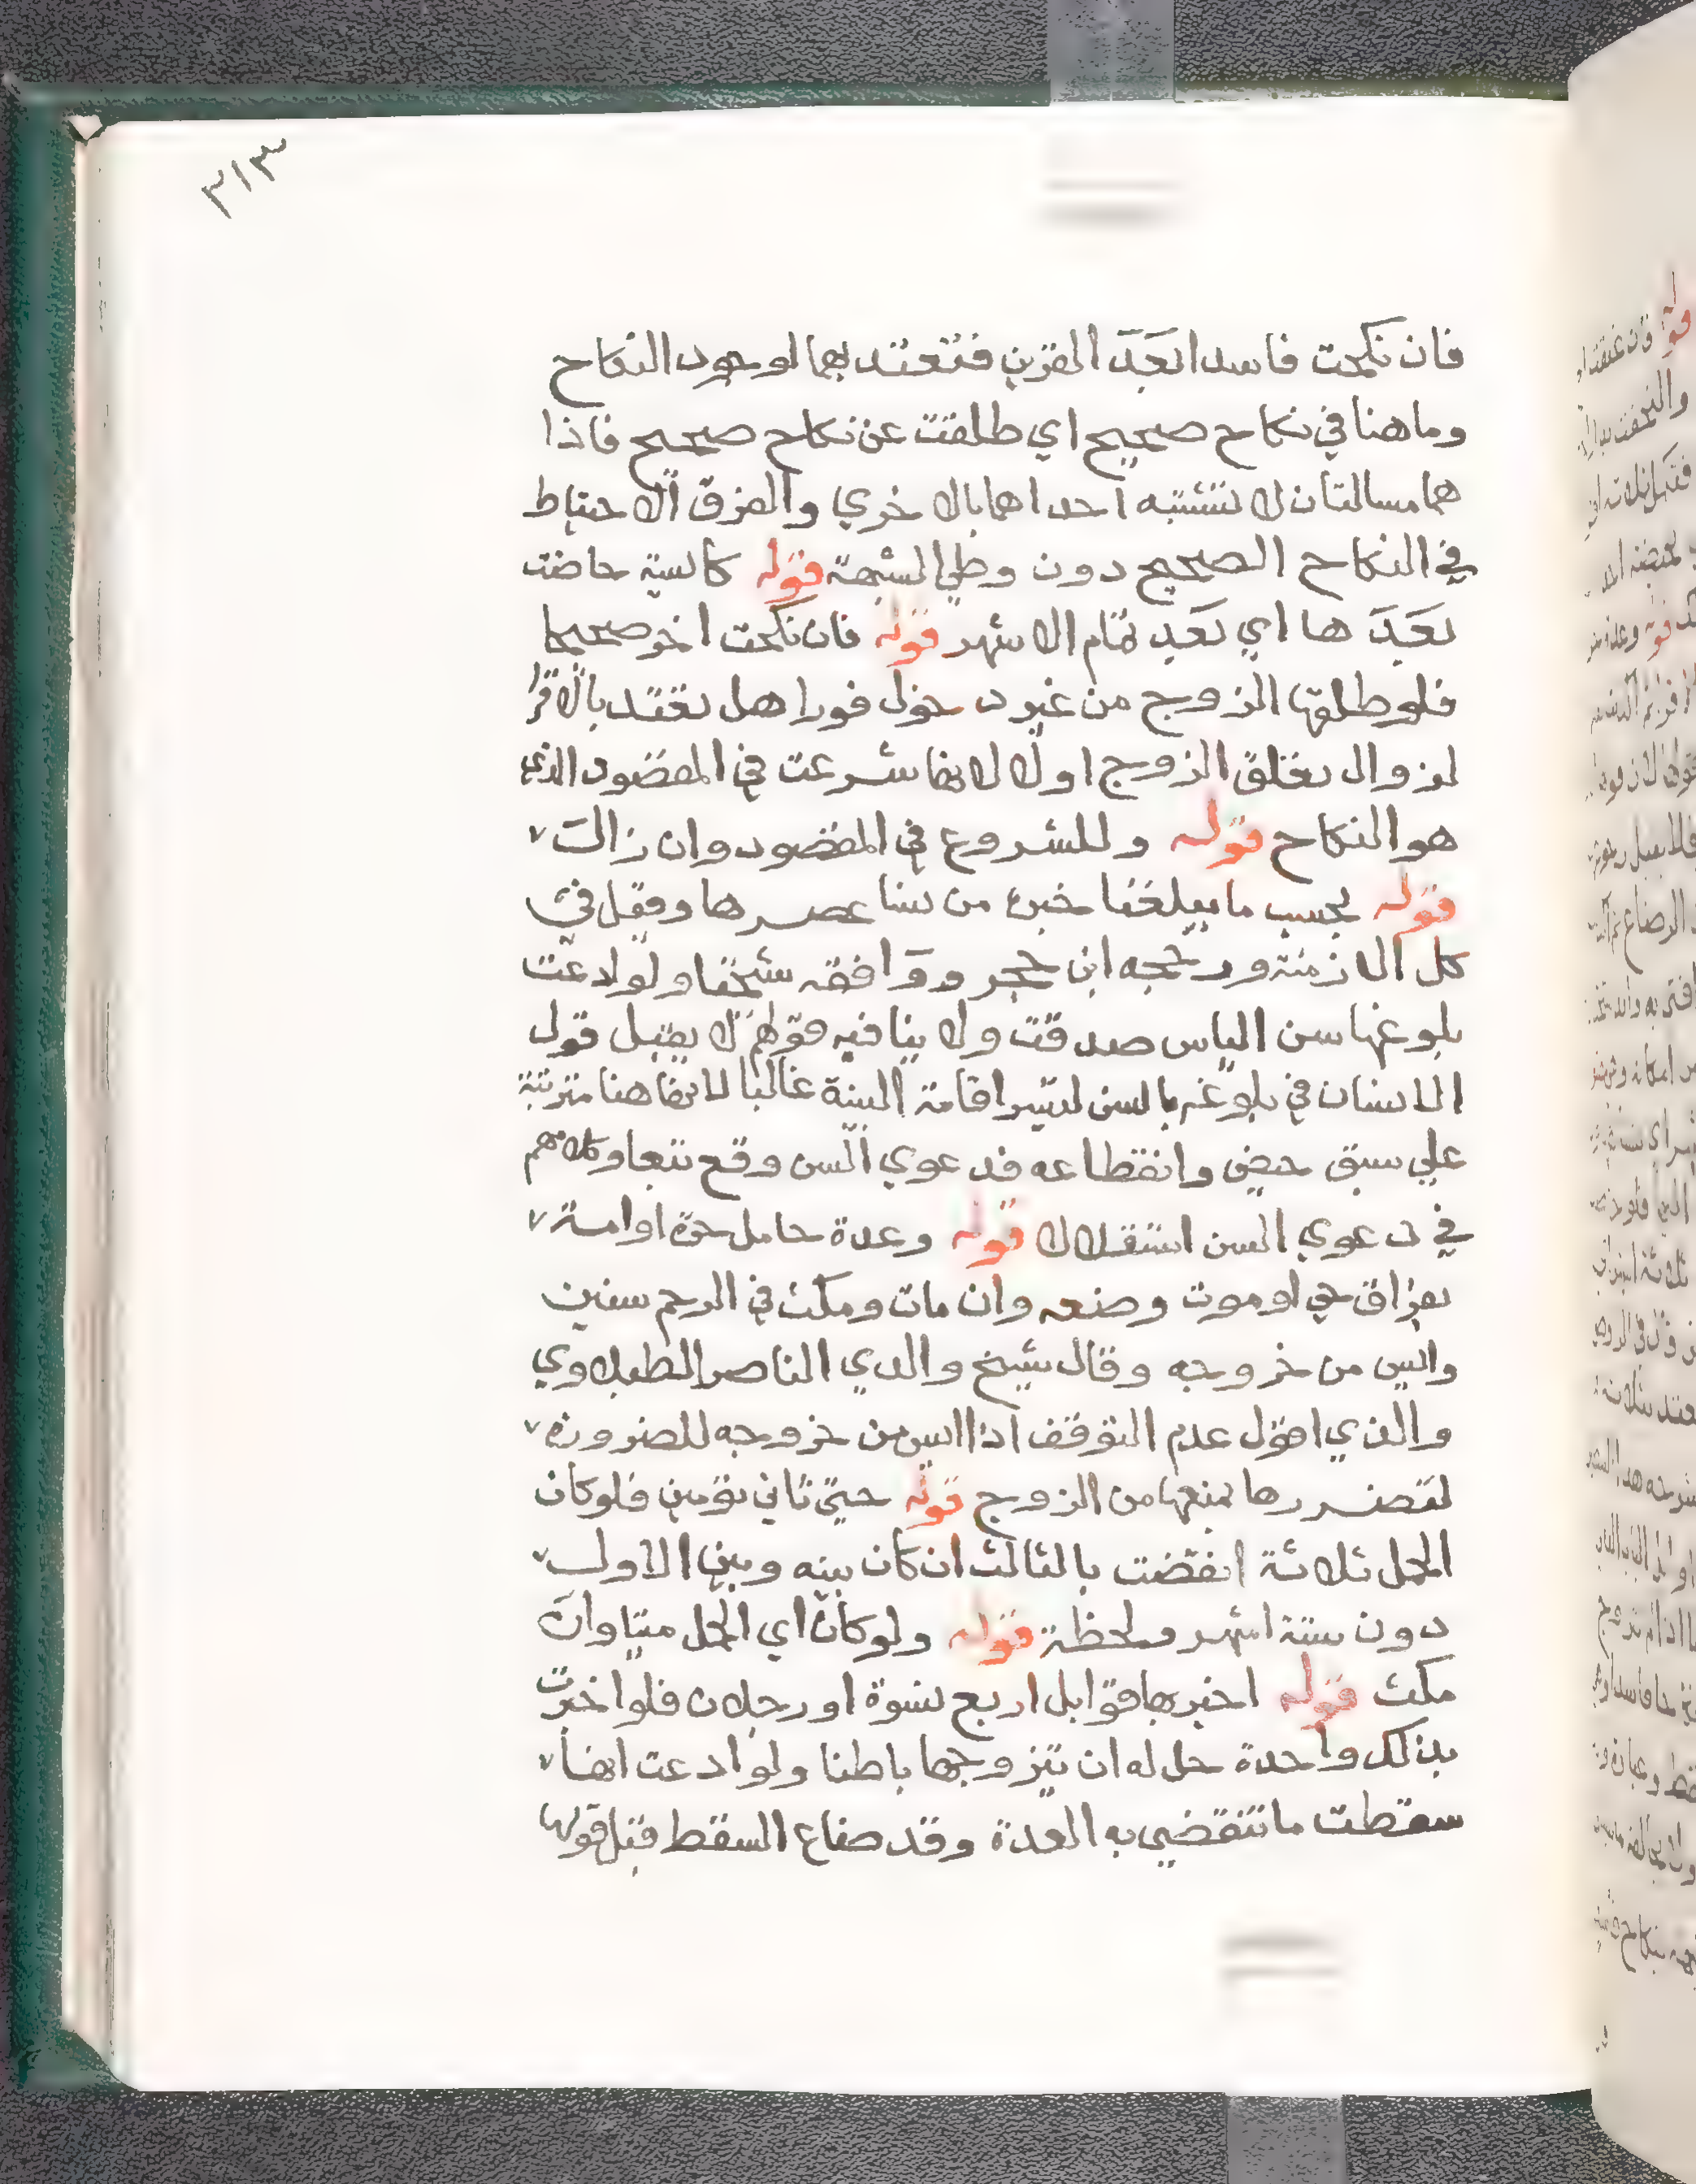 ٣١٣
فان نكحت فاسدا بعد القرين فتعتد بهما لوجود النكاح
وما هنا في نكاح صحيح اي طلقت عن نكاح صحيح فاذا
هما مسالتان لا تشتبه احداهما بالاخري والفرق الاحتياط
في النكاح الصحيح دون وطي الشبهة قوله كايسة حاضت
بعد ها اي بعد تمام الاشهر قوله فان نكحت اخر صحيحا
فلو طلقها الزوج من غير دخول فورا هل تعتد بالاقرا
لزوال تعلق الزوج اولا لانها شرعت في المقصود الذي
هو النكاح قوله وللشروع في المقصود وان زالت
قوله بحسب ما يبلغنا خبره من نسا عصرها وقيل في
كل الازمنة ورجحه ابن حجر ووافقه شيخنا ولو ادعت
بلوغها سن الياس صدقت ولا ينافيه قولهم لا يقبل قول
الانسان في بلوغه بالسن لتيسر اقامة البينة غالبا لانها هنا مترتبة
علي سبق حيض وانقطاعه فدعوي السن وقع تبعا وكلامهم
في دعوي السن استقلالا قوله وعدة حامل حرة او امة
بفراق حي او موت وضعه وان مات ومكث في الرحم سنين
وايس من خروجه وقال شيخ والدي الناصر الطبلاوي
والذي اقول عدم التوقف اذا ايس من خروجه للضرورة
لتضررها بمنعها من الزوج قوله حتي ثاني توءمين فلو كان
الحمل ثلاثة انقضت بالثالث ان كان بينه وبين الاول
دون ستة اشهر ولحظة قوله ولو كان اي الحمل ميتا وان
مكث قوله اخبر بها قوابل اربع نسوة او رجلان فلو اخبرت
بذلك واحدة حل له ان يتزوجها باطنا ولو ادعت انها
سقطت ما تنقضي به العدة وقد ضاع السقط قبل قولها